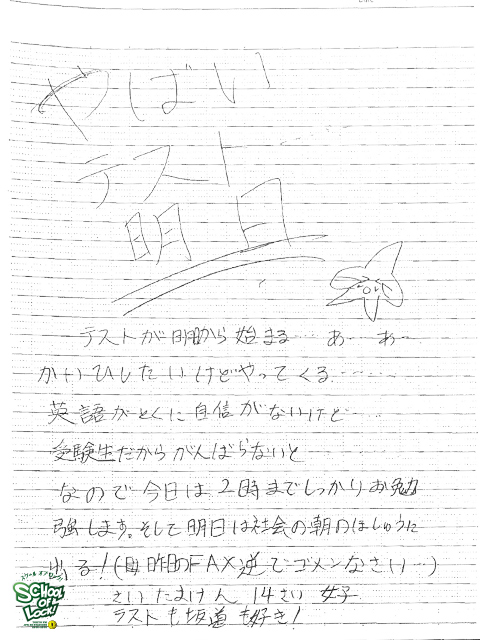 やばい
テスト
明日
テストが明日から始まる…… あ… あ…
かいひしたいけどやってくる……
英語がとくに自信がないけど……
受験生だからがんばらないと
なので今日は2時までしっかりお勉
強します。そして明日は社会の朝のほしゅうに
出る!( 昨昨のFAX逆でゴメンなさい…)
さいたまけん 14さい 女子
ラストも坂道も好き!
スクール オブ ロック!
SCHOOL
OF
LOCK!